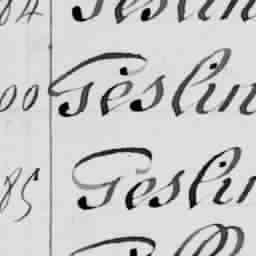 84 Geslin
00 Gèslin
85 Geslin